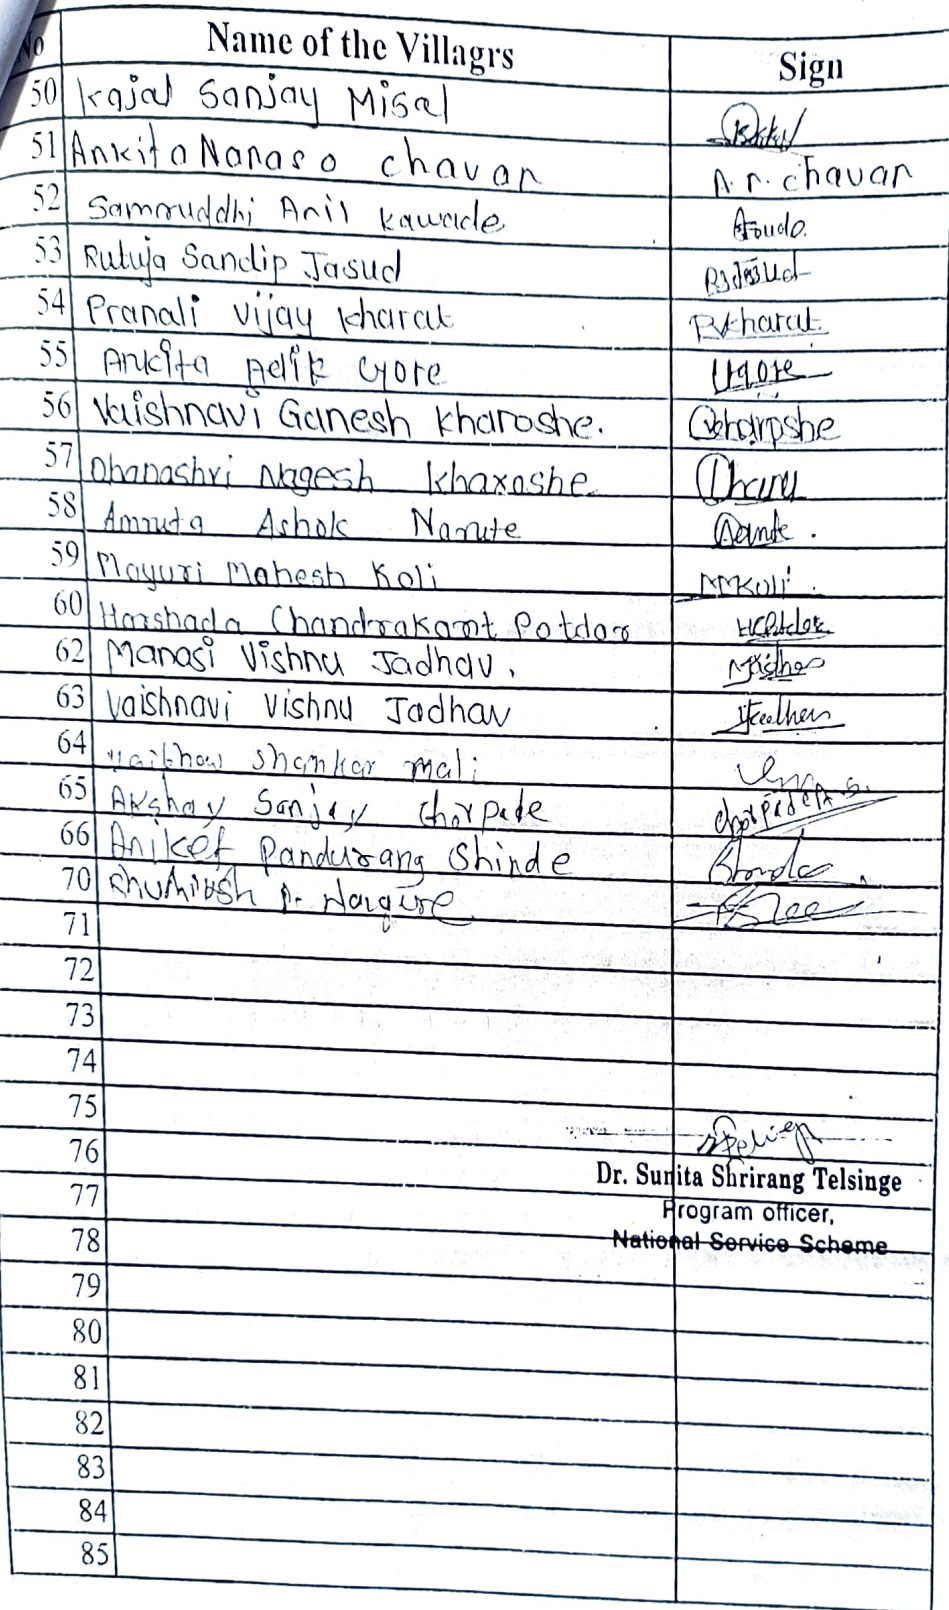 No Name of the Villagrs Sign
50 Kajal Sanjay Misal
51 Ankita Nanaso chavan A.n. chavan
52 Samruddhi Anil Kawade
53 Rutuja Sandip Jasud
54 Pranali Vijay Kharat P.V.kharat
55 Ankita Adik Gore
56 Vaishnavi Ganesh Kharoshe.
57 Dhanashri Nagesh Kharoshe
58 Amruta Ashok Narute
59 Mayuri Mahesh Koli MMKoli
60 Harshada Chandrakant Potdar HCPotdar
62 Manasi Vishnu Jadhav.
63 Vaishnavi Vishnu Jadhav
64 Vaibhav Shankar mali
65 Akshay Sanjay Ghorpade Ghorpade A.S.
66 Aniket Pandurang Shinde
70
71
72
73
74
75
76
Dr. Sunita Shrirang Telsinge
77
Program officer,
78
National Service Scheme
79
80
81
82
83
84
85